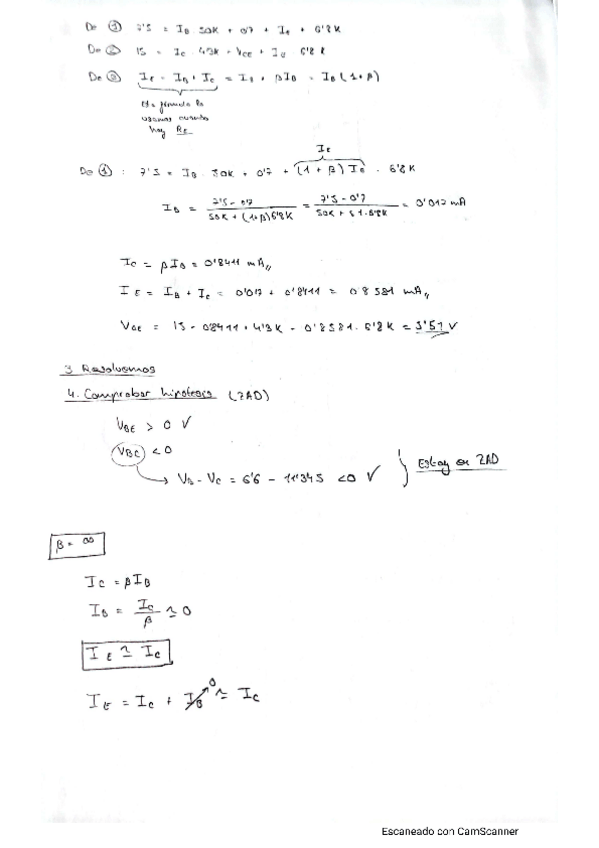 De ① 7'5 = IB 50K + 0'7 + IE + 6'8K
De ② 15 = IC 4'3K + VCE + IE 6'8K
De ③ IE = IB + IC = IB + βIB = IB (1+β)
Esta fórmula la
usamos cuando
hay RE
IE
De ① : 7'5 = IB · 50K + 0'7 + (1 + β) IB · 6'8K
IB = 7'5 - 0'7 / 50K + (1+β)6'8K = 7'5 - 0'7 / 50K + 51·6'8K = 0'017 mA
IC = βIB = 0'8411 mA,,
IE = IB + IC = 0'017 + 0'8411 = 0'8581 mA,,
VCE = 15 - 0'8411 · 4'3K - 0'8581 · 6'8K = 5'51 V
3 Resolvemos
4. Comprobar hipótesis (ZAD)
VBE > 0 √
VBC < 0
VB - VC = 6'6 - 11'345 < 0 √ Estoy en ZAD
β = ∞
IC = βIB
IB = IC / β ≃ 0
IE ≃ IC
IE = IC + IB 0 ≃ IC
Escaneado con CamScanner